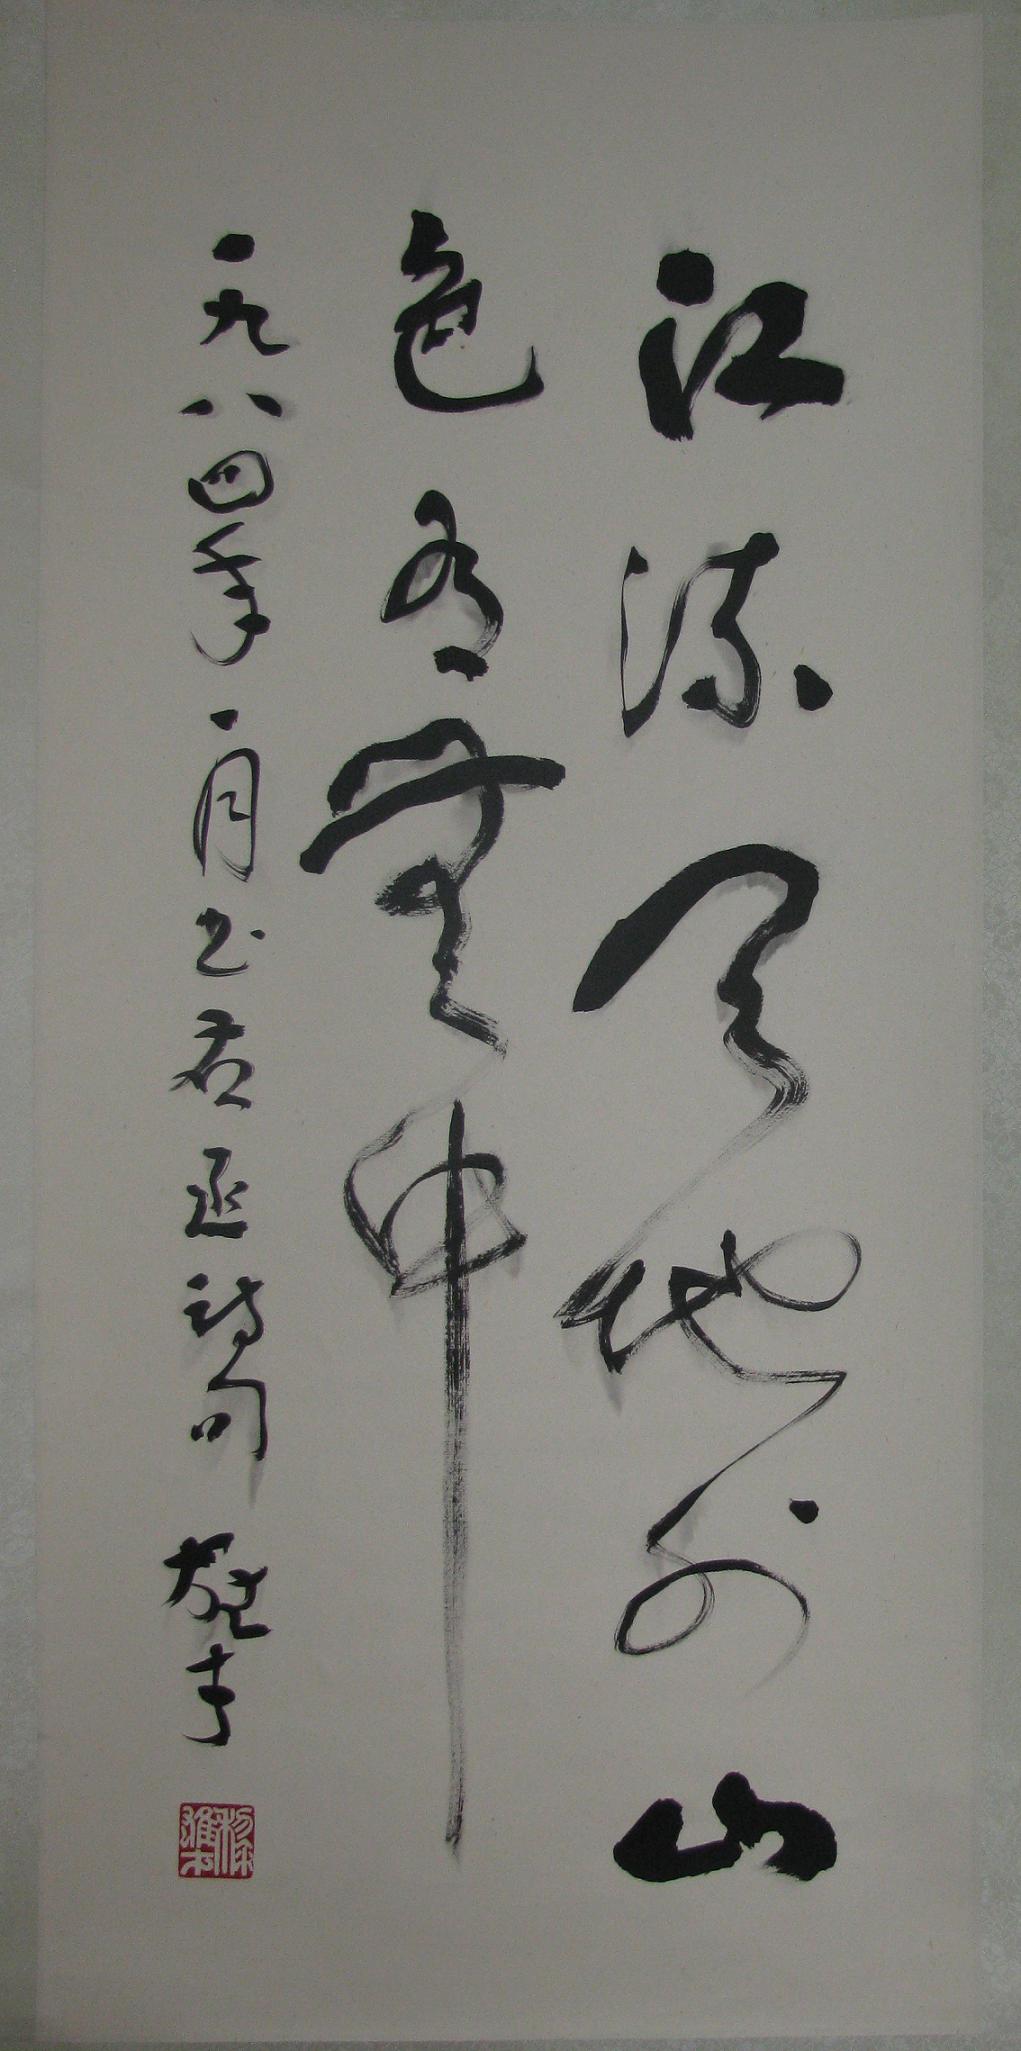 江流天地外山
色有无中
一九八四年一月书右丞诗句